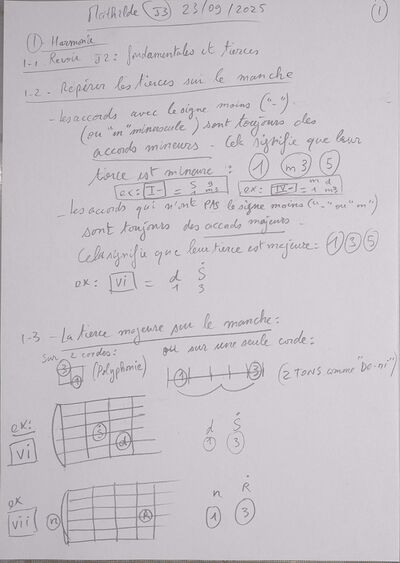 Mathilde J3 23/09/2025 1
1 Harmonie
1-1- Revoir J2: fondamentales et tierces
1-2- Repérer les tierces sur le manche
- Les accords avec le signe moins ("-"
(ou "m" minuscule) sont toujours des
accords mineurs. Cela signifie que leur
tierce est mineure : 1 m3 5
ex: I- = S g 1 m3 ex: IV-I = m d 1 m3
- Les accords qui n'ont PAS le signe moins ("-" ou "m")
sont toujours des accords majeurs.
Cela signifie que leur tierce est majeure: 1 3 5
ex: vi = d S
1 3
1-3- La tierce majeure sur le manche:
sur 2 cordes: ou sur une seule corde:
3 1 (Polyphonie) 1 3 (2 TONS comme "Do-mi")
ex:
vi S d d S
1 3
ex
vii n R n R
1 3